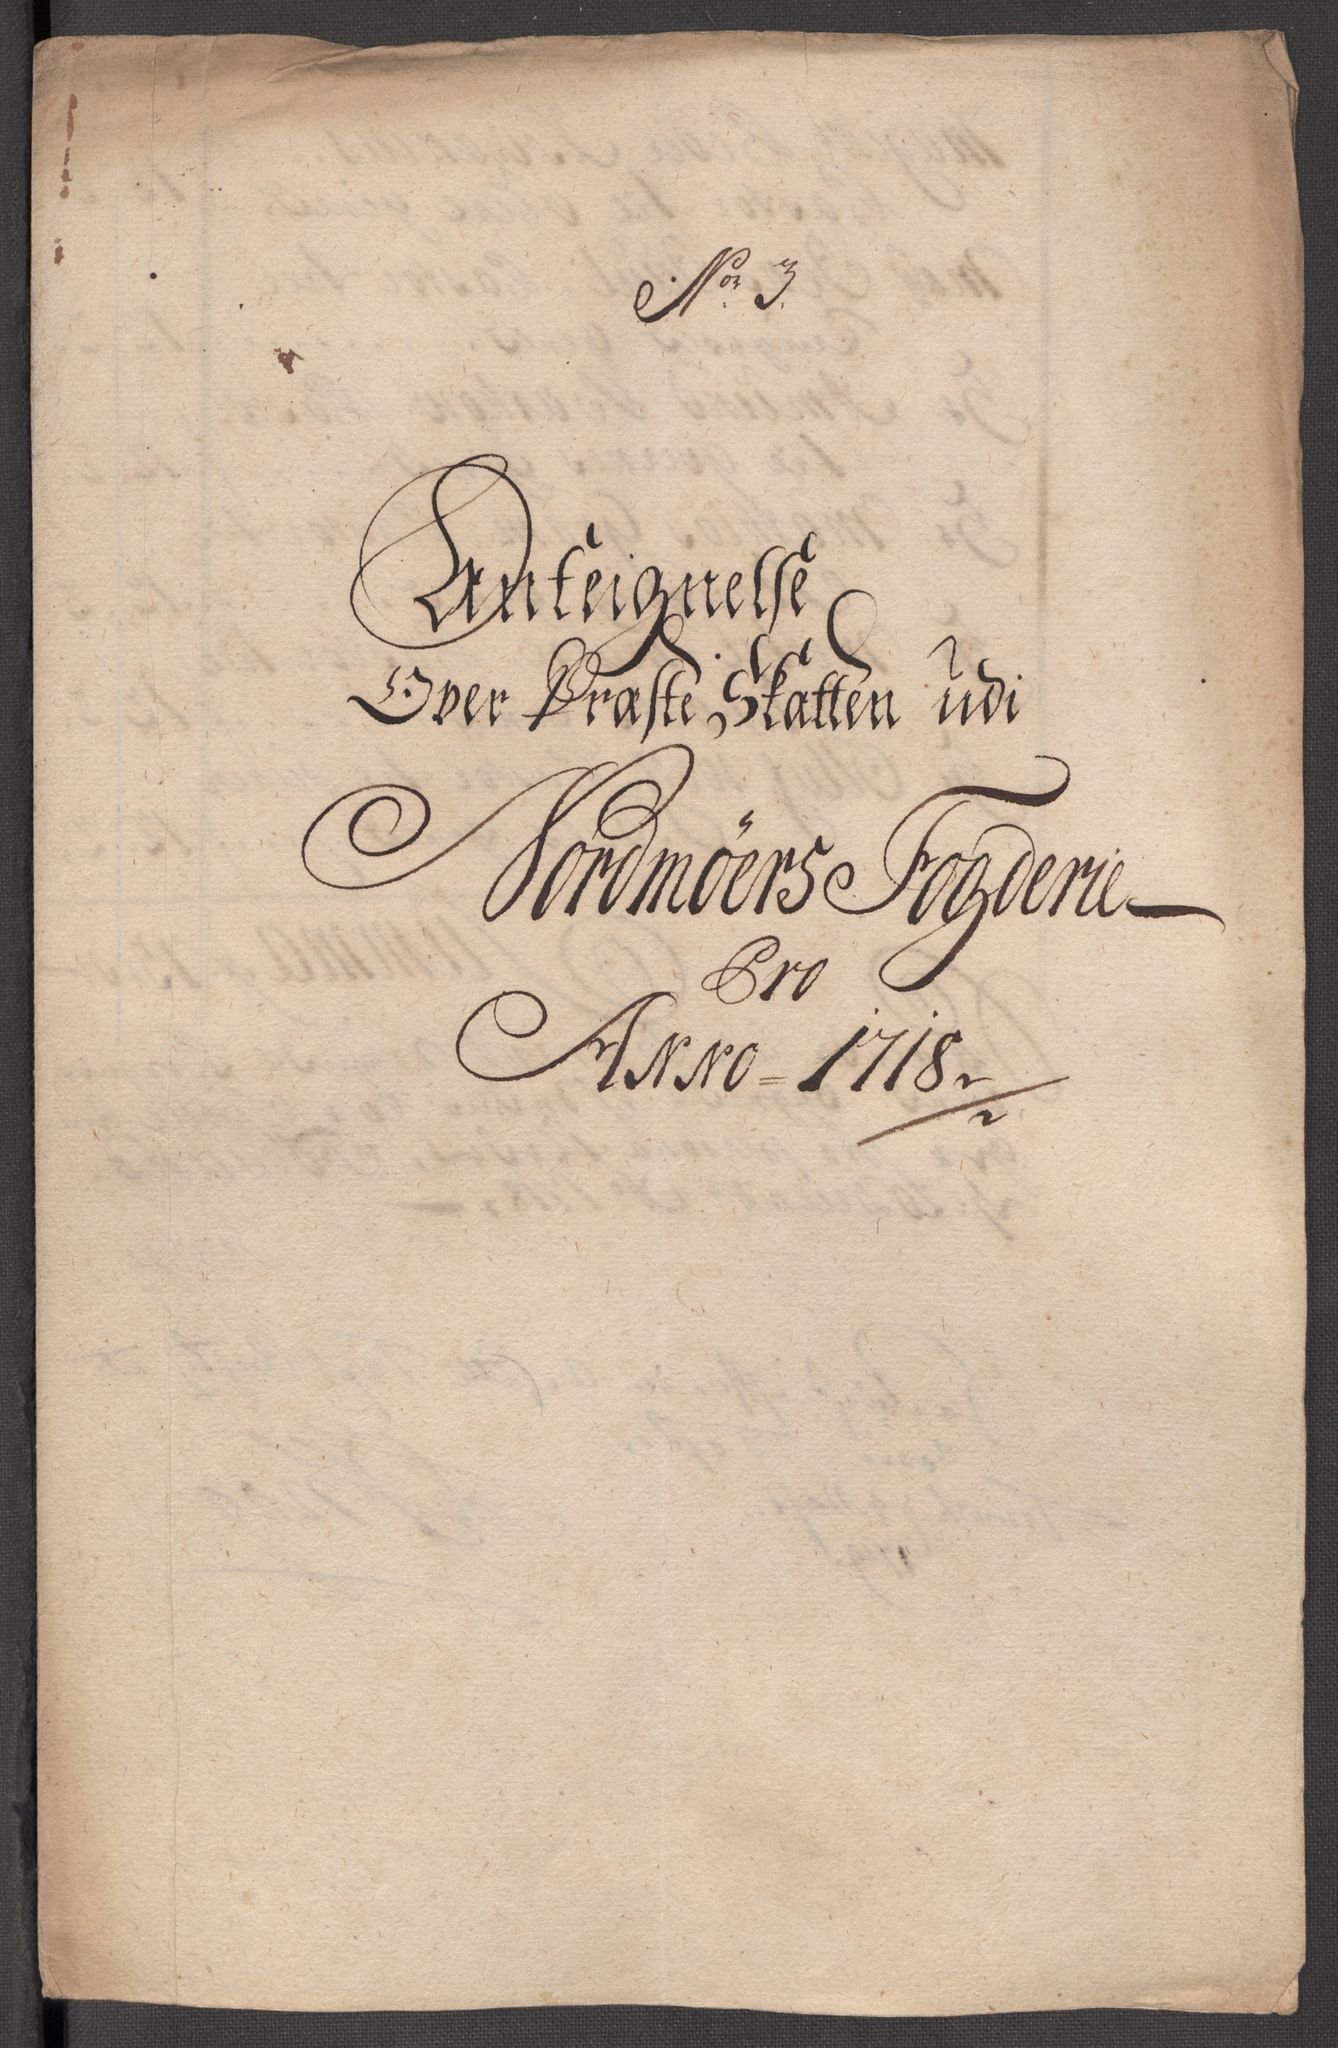 No: 3.
Anteignelse
Over Præste Skatten udi
Nordmöers Fogderie
Pro
Anno = 1718